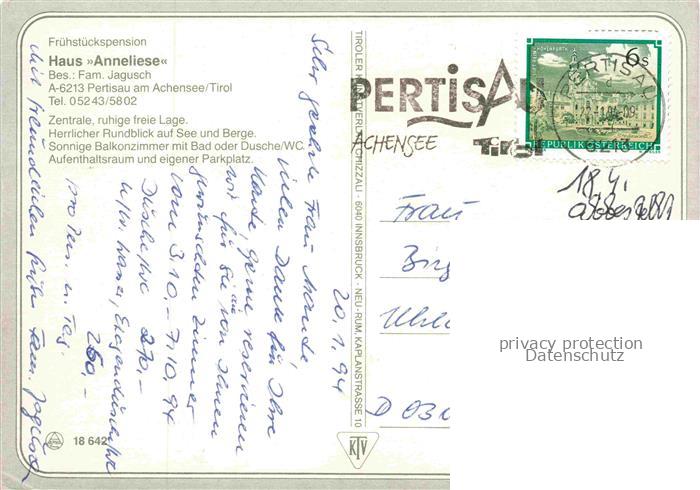 Frühstückspension
Haus »Anneliese«
Bes.: Fam. Jagusch
A-6213 Pertisau am Achensee/Tirol
Tel. 0 52 43/58 02
Zentrale, ruhige freie Lage.
Herrlicher Rundblick auf See und Berge.
Sonnige Balkonzimmer mit Bad oder Dusche/WC.
Aufenthaltsraum und eigener Parkplatz.
20.1.94
Sehr geehrte Frau
vielen Dank für Ihre
Karte, gerne reservieren
wir für Sie die von Ihnen
gewünschten Zimmer
vom 3.10. - 7.10.94
Dusche/WC 270.-
Etagendusche
250,-
pro Pers. u. Tag.
mit freundlichen Grüßen Fam. Jagusch
18 642
TIROLER KUNSTVERLAG CHIZZALI - 6040 INNSBRUCK - NEU-RUM, KAPLANSTRASSE 10
KTV
PERTISAU
ACHENSEE Tirol
HOHENFURTH
6 S
REPUBLIK ÖSTERREICH
PERTISAU
6213
18.4.
Frau
Birg
D
privacy protection
Datenschutz